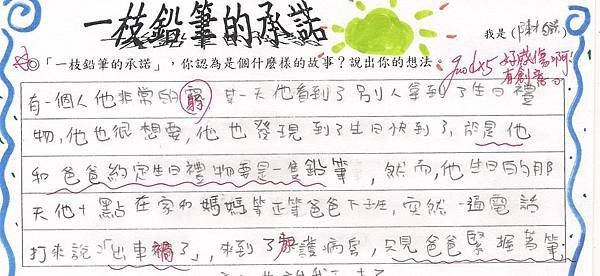 一枝鉛筆的承諾
我是(陳
◎「一枝鉛筆的承諾」,你認為是個什麼樣的故事?說出你的想法。
good×5 好感傷啊!
有創意。
有一個人他非常的窮,某一天他看到了別人拿到了生日禮
物,他也很想要,他也發現到了生日快到了,於是他
和爸爸約定生日禮物要是一隻鉛筆,然而,他生日的那
天他十點在家和媽媽等正等爸爸下班,突然一通電話
打來說「出車禍了」,來到了加護病房,只見爸爸緊握著筆